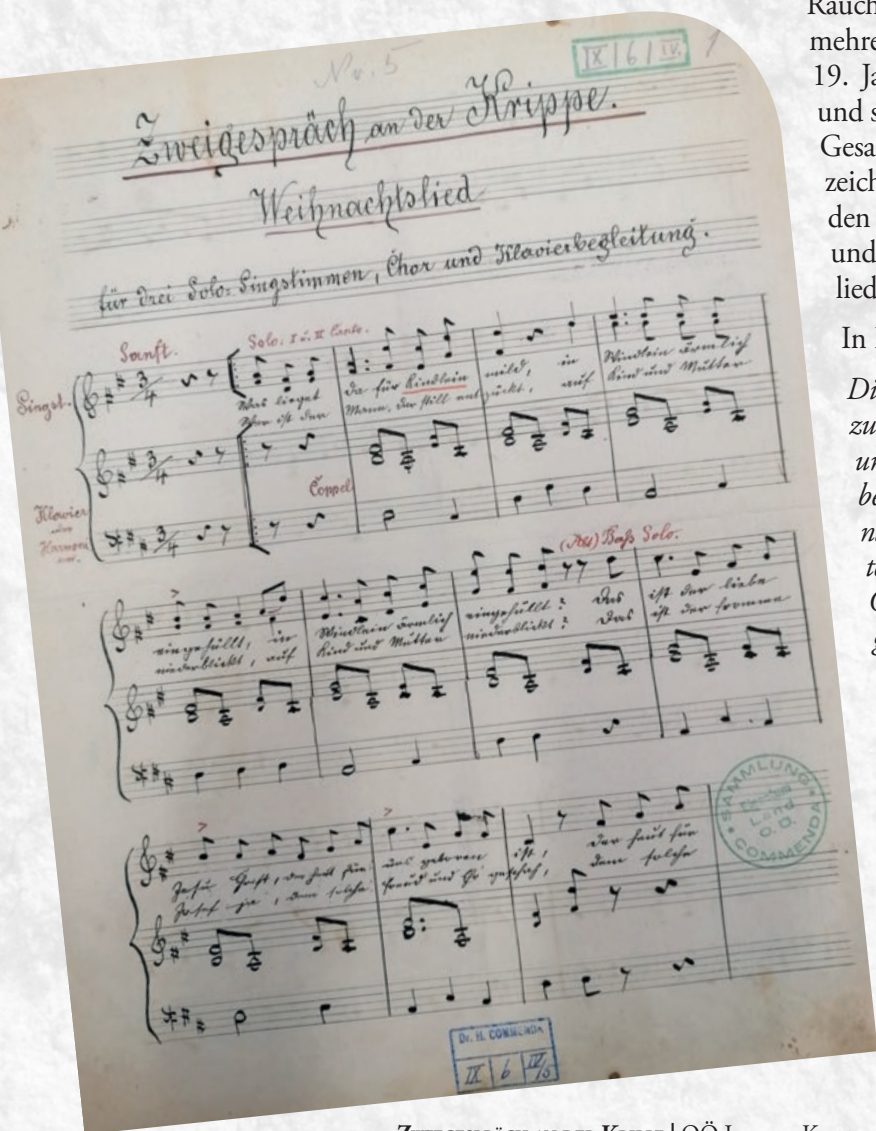 Rauch
mehre
19. Ja
und s
Gesa
zeich
den
und
lied
In
Di
zu
un
be
n
t
g
No. 5
IX | 6 | IV.
1
Zweigespräch an der Krippe.
Weihnachtslied
für drei Solo-Singstimmen, Chor und Klavierbegleitung.
Sanft.
Solo: I u. II Canto.
Singst.
3/4
Was lieget da für Kindlein mild, in Windlein ärmlich
Wer ist der Mann, der still entzückt, auf Kind und Mutter
3/4
Coppel
Klavier
oder
3/4
(Alt) Baß Solo.
eingehüllt, in Windlein ärmlich eingehüllt? Das ist der liebe
niederblickt, auf Kind und Mutter niederblickt? Das ist der fromme
Jesu Christ, der heut für uns geboren ist, der heut für
Josef ja, dem solche Freud und Ehr geschah, dem solche
SAMMLUNG
Land
O.Ö.
COMMENDA
Dr. H. COMMENDA
IX | 6 | IV/5